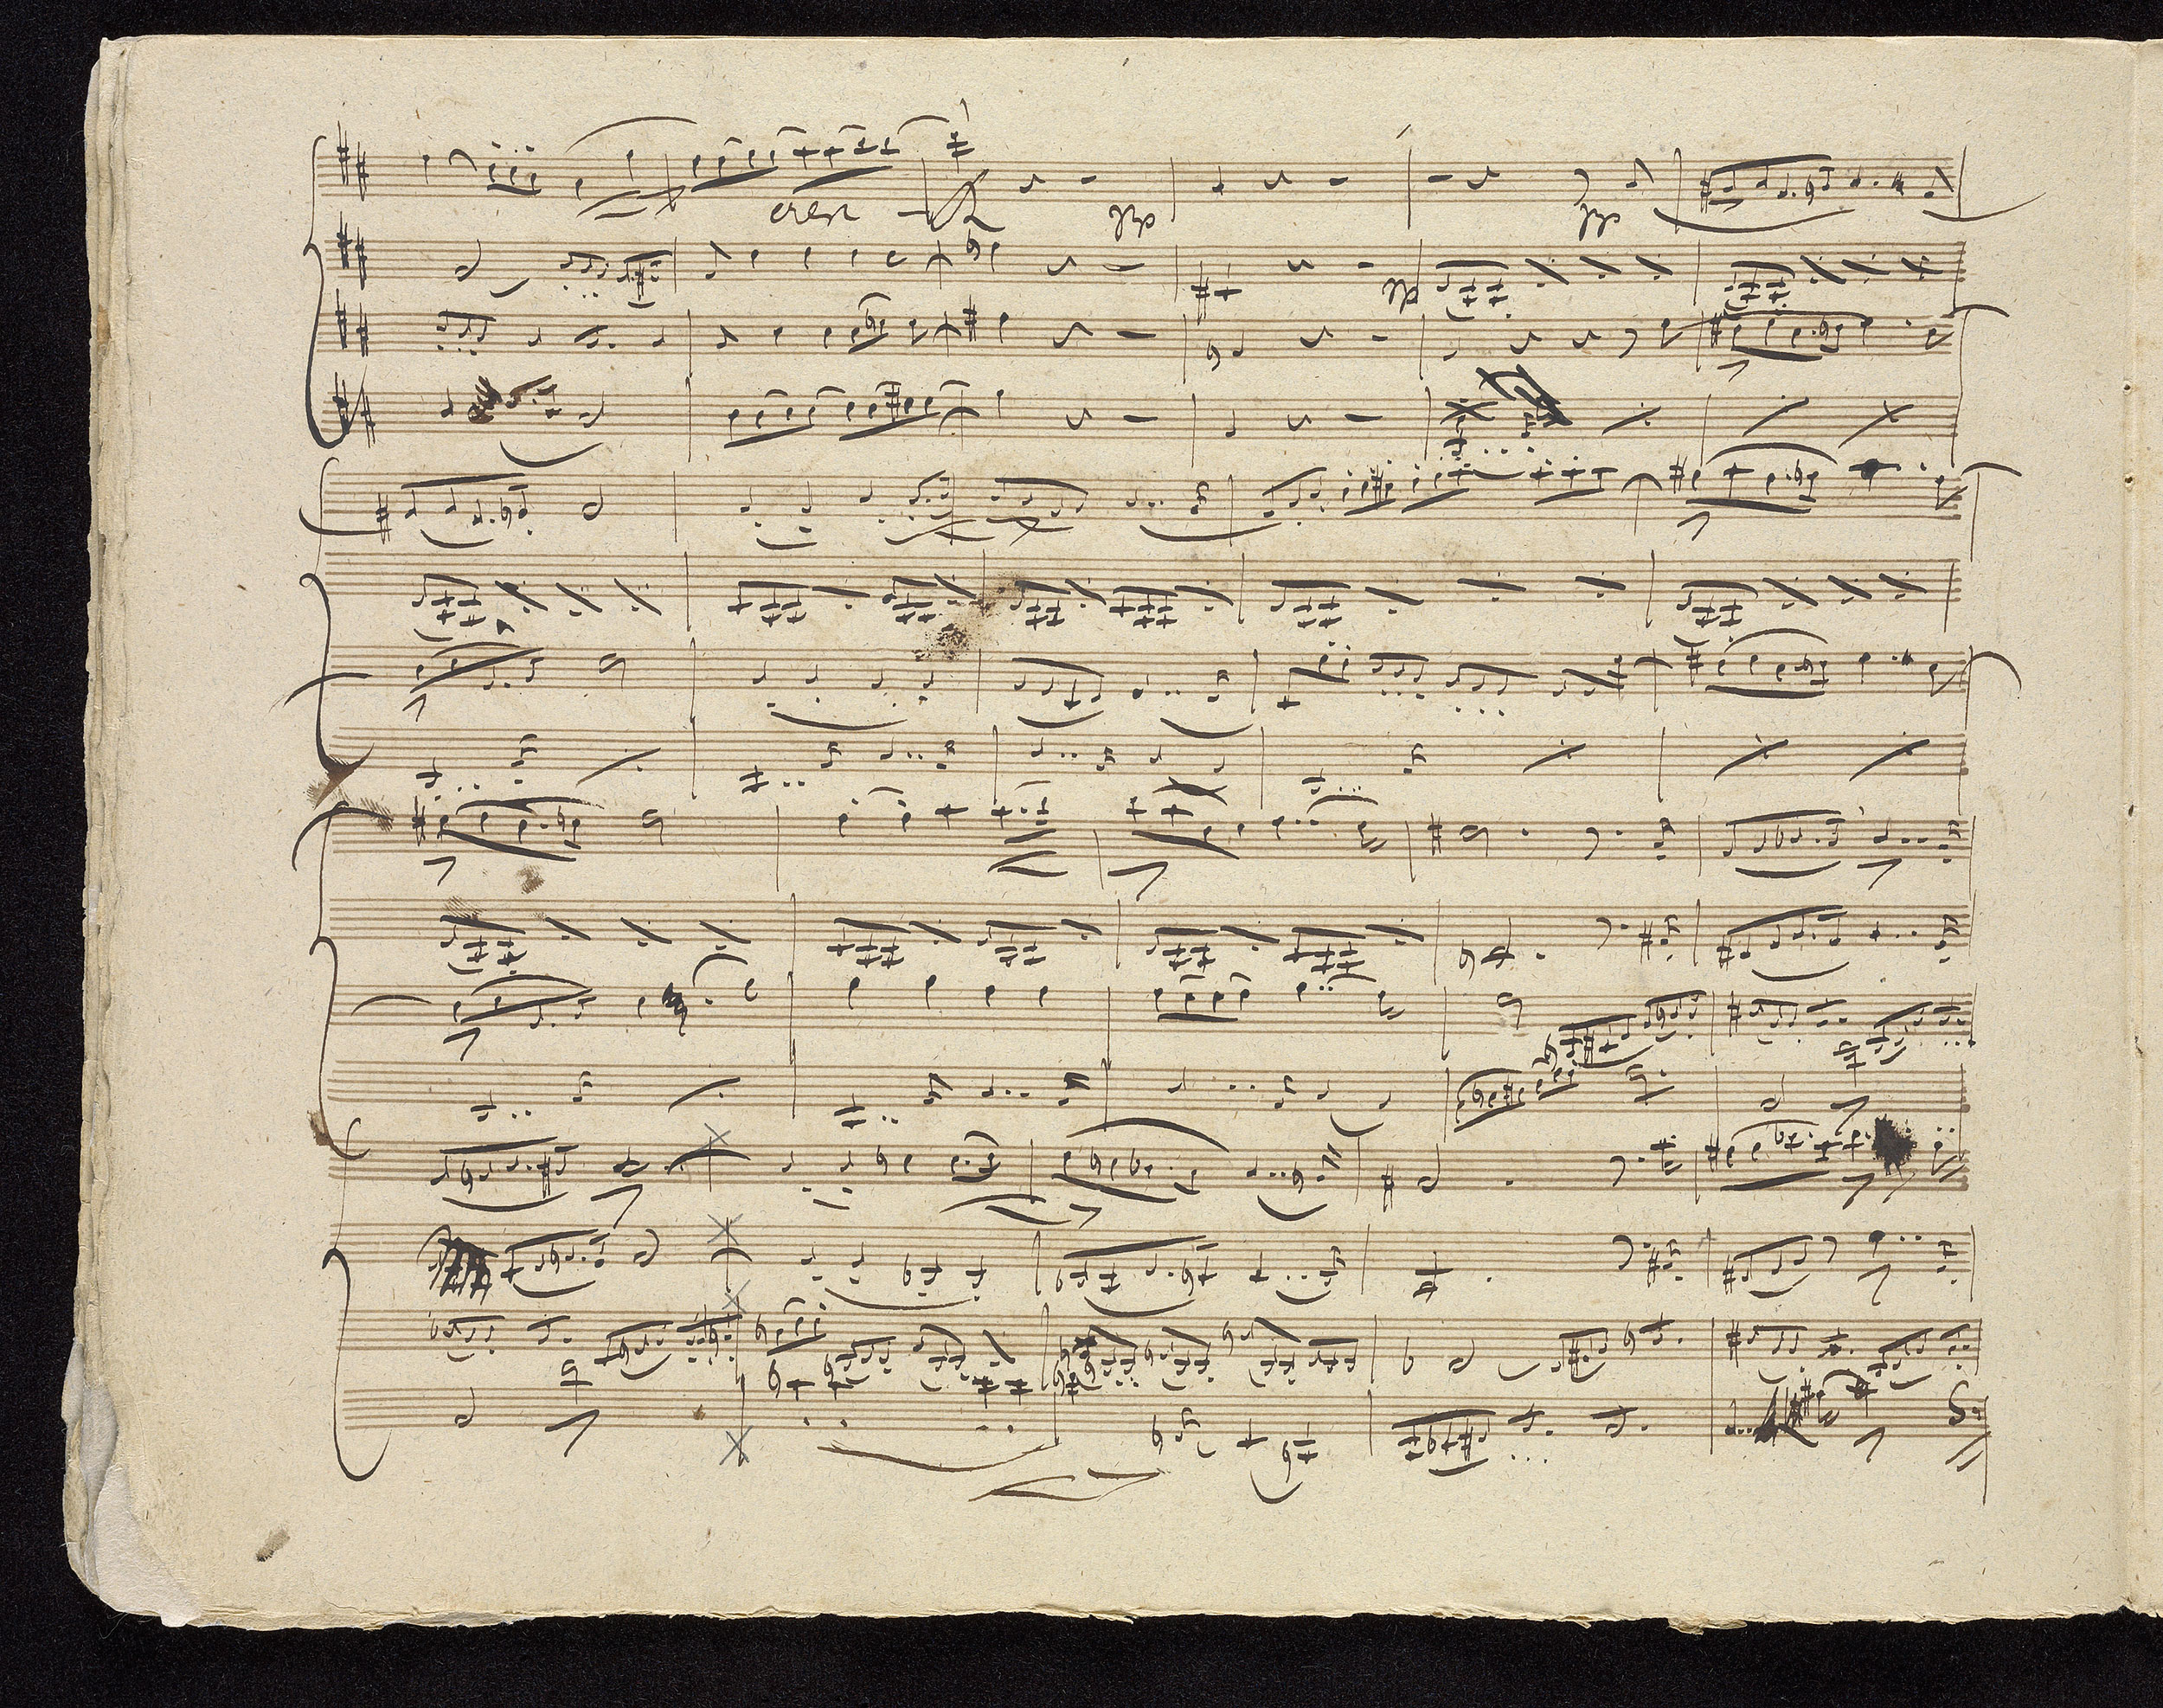 cresc
pp
pp
pp